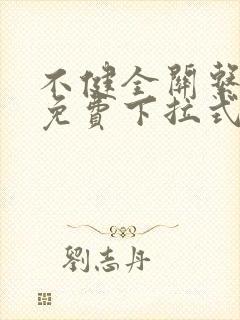 不健全關繫
免費下拉式
劉志丹